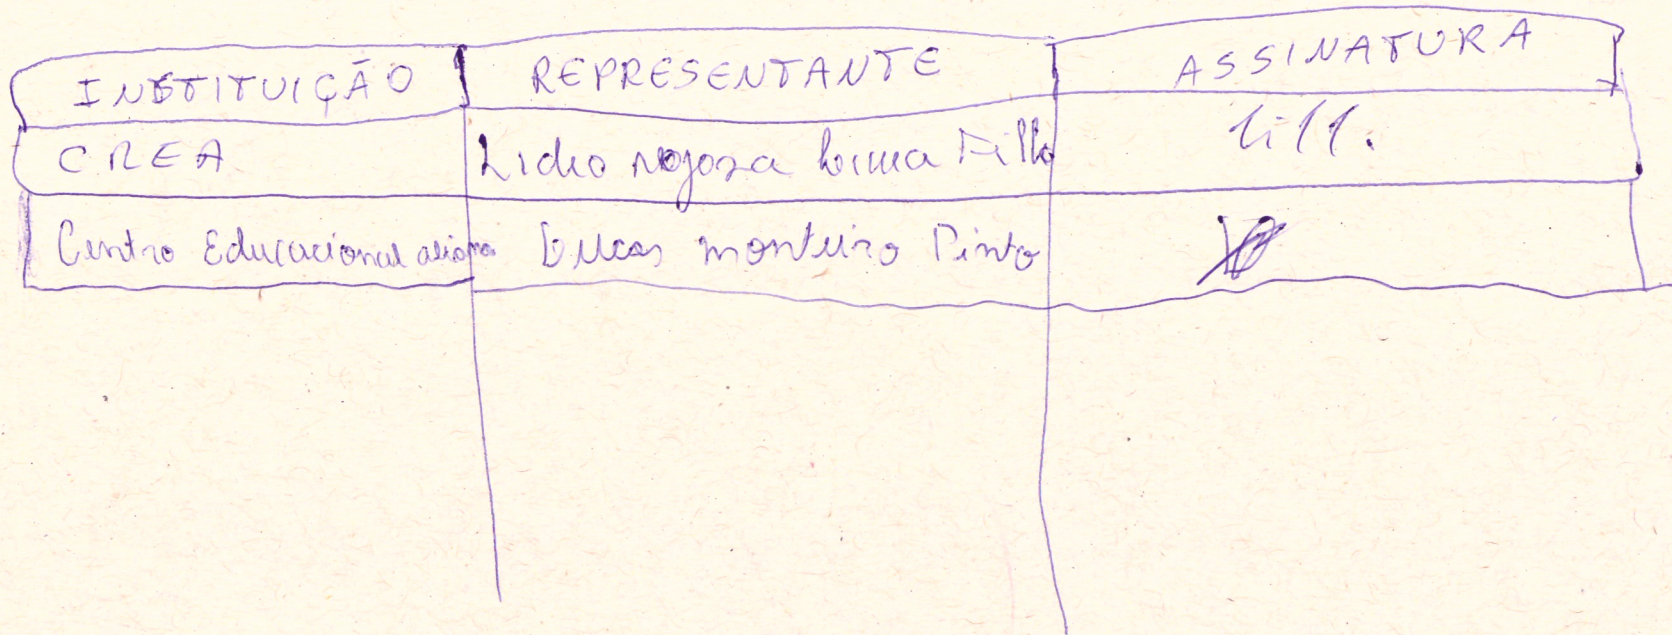 INSTITUIÇÃO REPRESENTANTE ASSINATURA
CREA Lima Filho
Centro Educacional Lucas monteiro Pinto